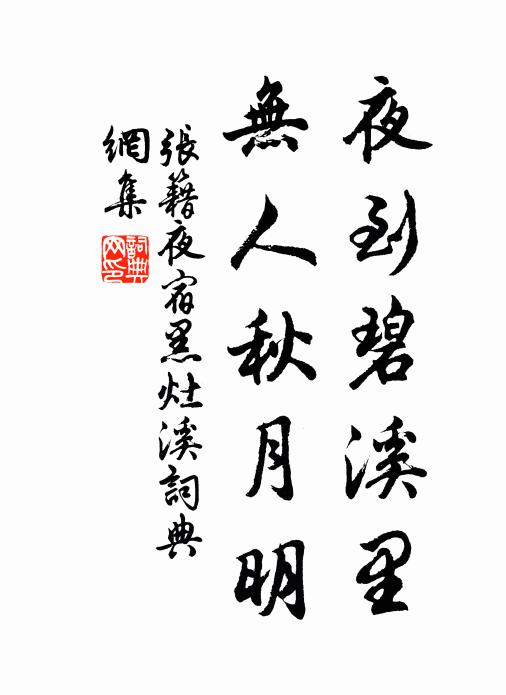 夜到碧溪里
無人秋月明
張籍夜宿黑灶溪詞典
網集
詞典網印